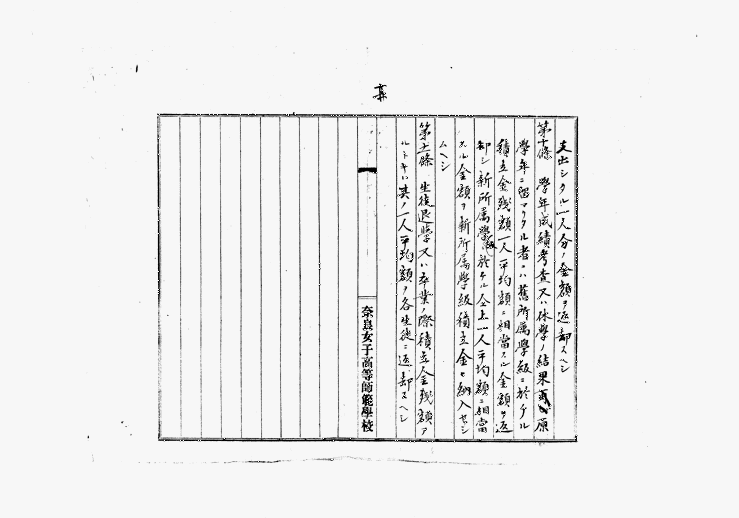 支出シタル一人分ノ金額ヲ返却スヘシ
第十條 學年成績考査又ハ休學ノ結果原
學年ニ留マリタル者ハ舊所属學級ニ於ケル
積立金残額一人平均額ニ相當スル金額ヲ返
却シ新所属學級於ケル仝上一人平均額ニ相當
スル金額ヲ新所属學級積立金ヘ納入セシ
ムヘシ
第十一條 生徒退學又ハ卒業ノ際積立金残額ア
ルトキハ其ノ一人平均額ヲ各生徒ニ返却スヘシ
奈良女子高等師範學校